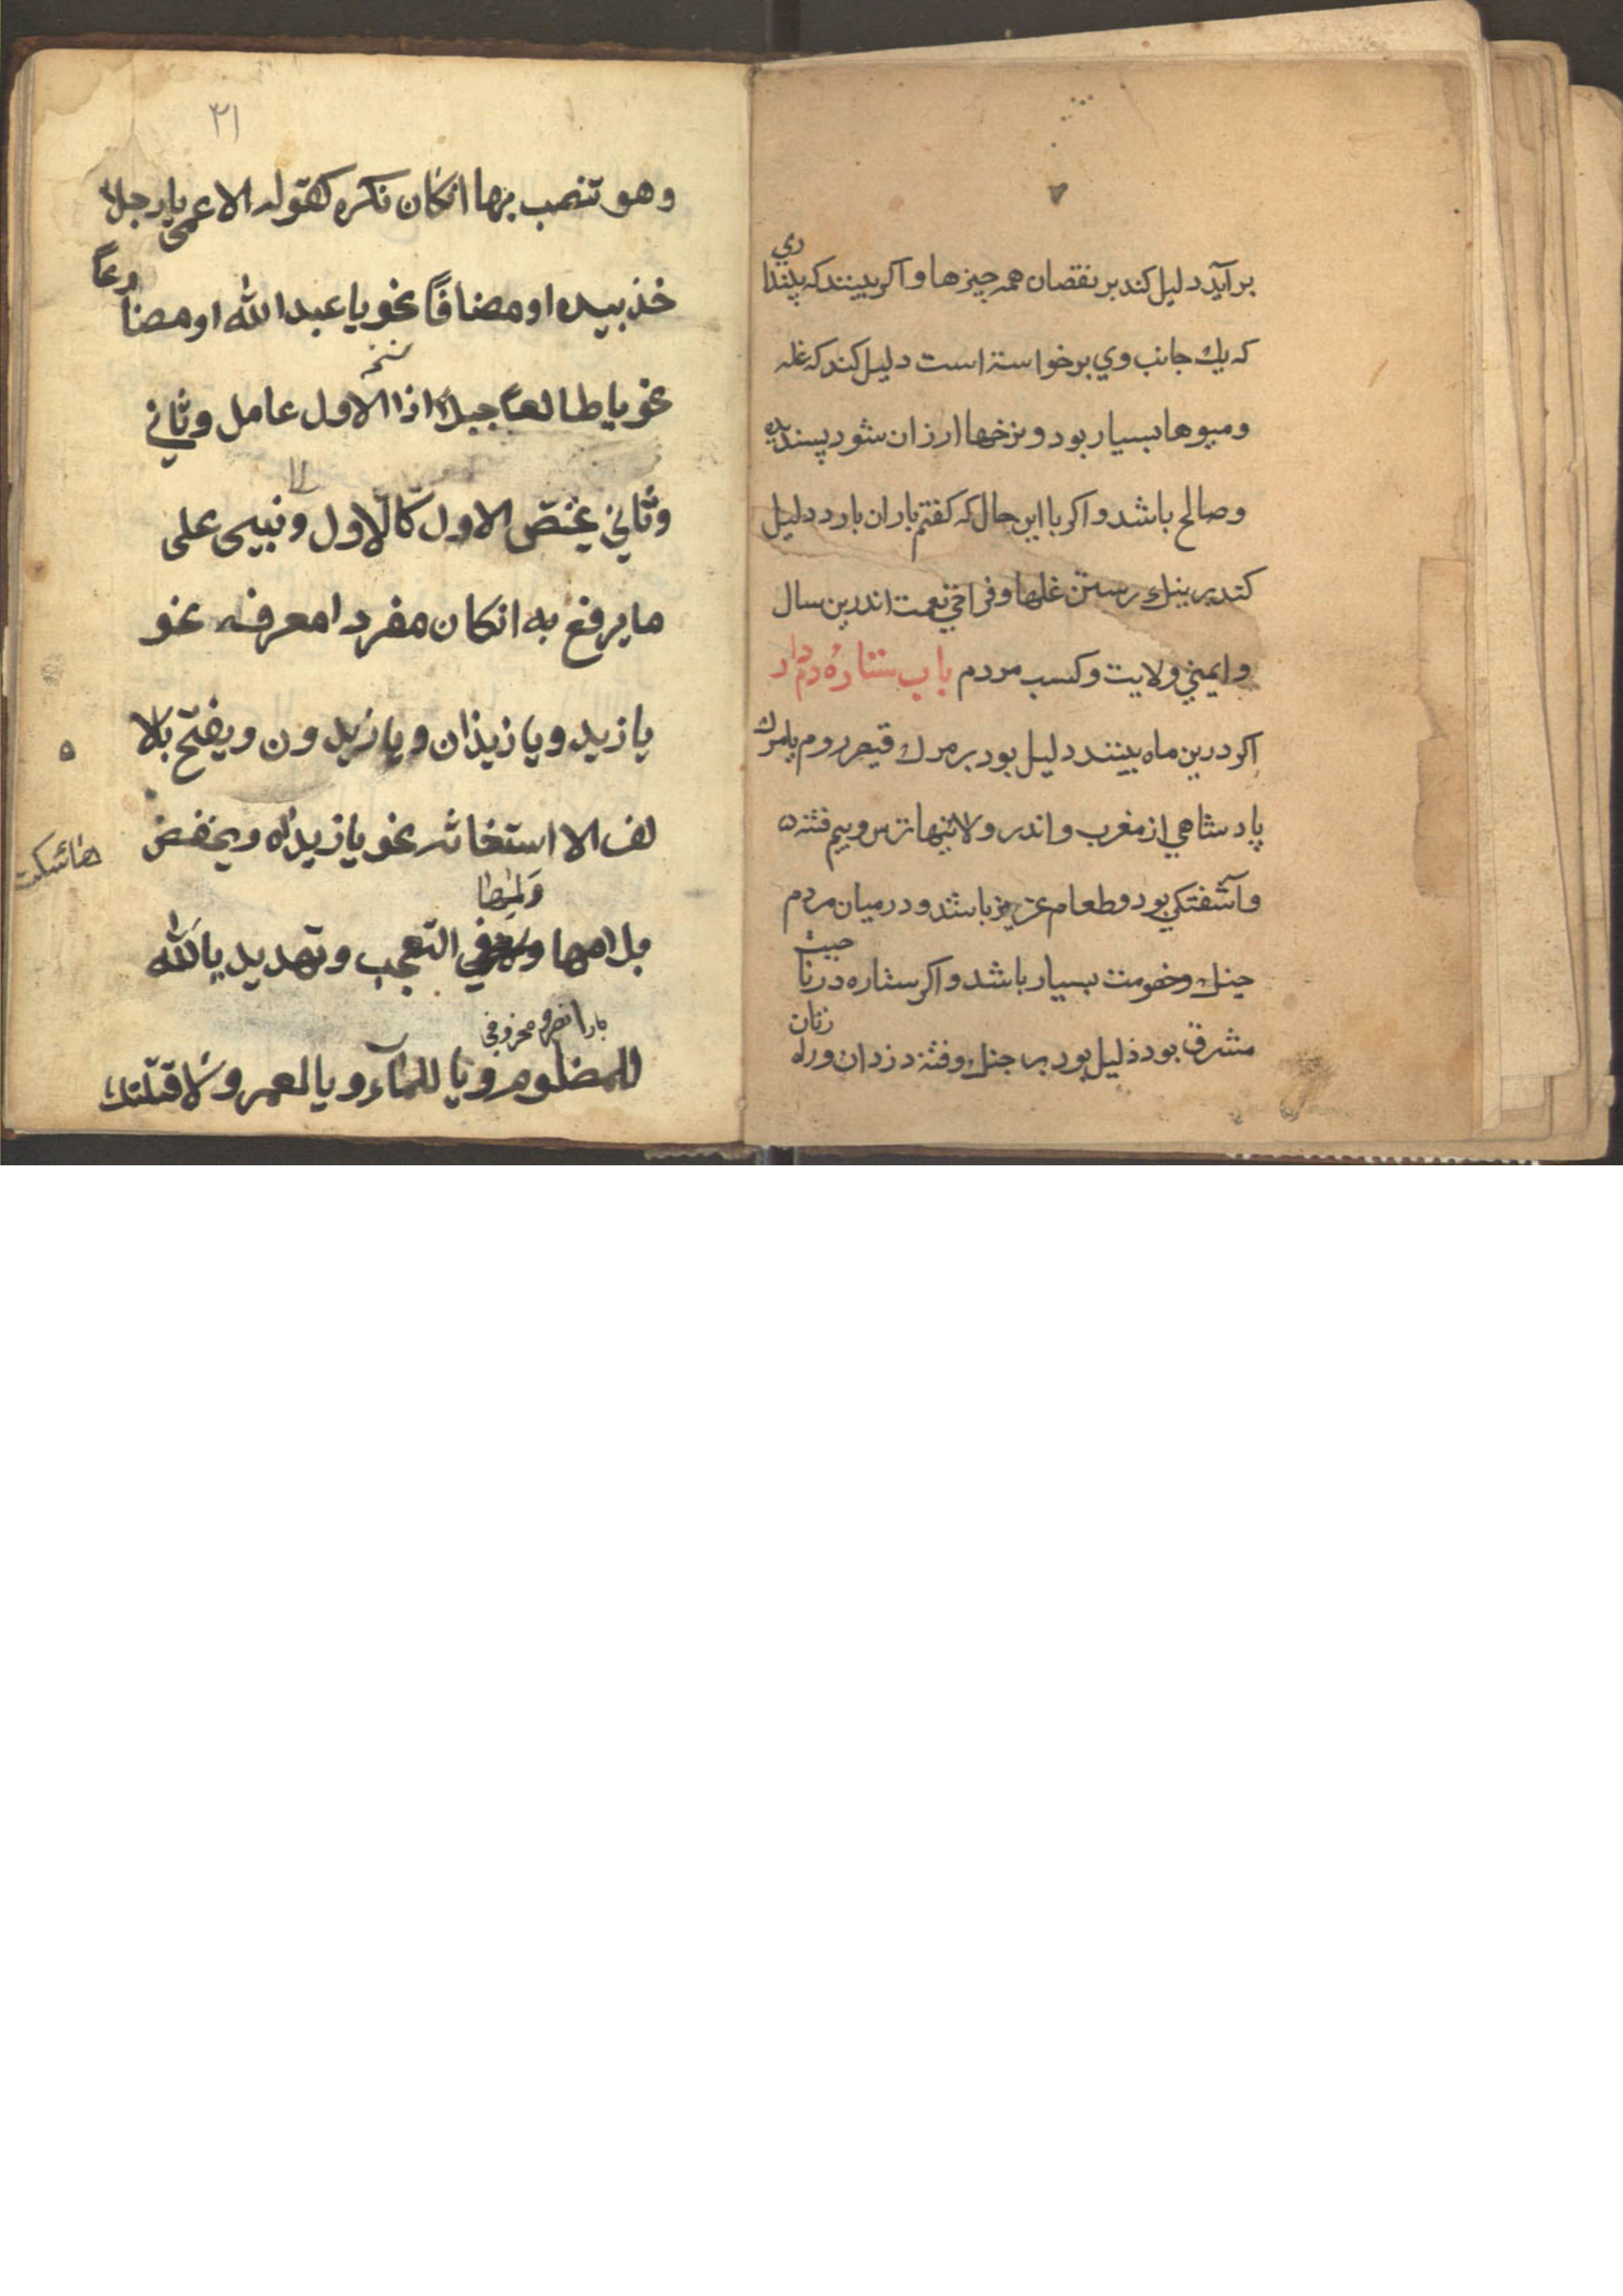 بر آید دلیل کند بر نقصان همه چیزها و اکر بینند که پندا
ري
که یك جانب وي برخواسته است دلیل کند که غله
و میوها بسیار بود و نرخها ارزان شود پسندیده
و صالح باشد و اکر با این حال که کفتم باران بارد دلیل
کند بر نیك رستن غلها و فراخي نعمت اندرین سال
و ایمني ولایت و کسب مردم باب ستاره دم دار
اکر درین ماه بینند دلیل بود بر مرك قیصر روم یا مرك
پادشاهي از مغرب و اندر ولایتها ترس و بیم فتنه
و آشفتکي بود و طعام عزیز باشد و در میان مردم
جنك و خصومت بسیار باشد و اکر ستاره در نا
حیت
مشرق بود دلیل بود بر جنك و فتنه دزدان و راه
زنان
۳۱
وهو تنصب بها انكان نكره كقوله الاعمى يا رجلا
خذ بيده او مضافًا نحو يا عبد الله او مضا
رعًا
نحو يا طالعًا جبلًا اذا الاول عامل وثاني
وثاني يختص الاول كالاول ونبيى على
ما يرفع به انكان مفردا معرفه نحو
يا زيد ويا زيذان ويا زيد ون ويفتح بالا
لف الا استغاثه نحو يا زيداه ويخفض
بلامها وفي التعجب وتهديد يا لله
للمضلوم ويا للماء ويا لعمرو لاقتلنك